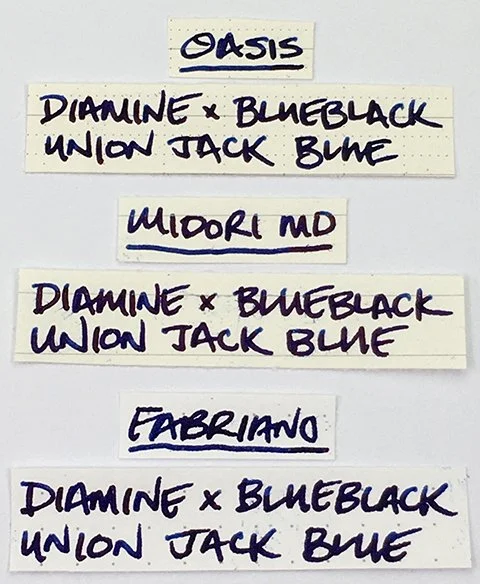 OASIS
DIAMINE x BLUEBLACK
UNION JACK BLUE
MIDORI MD
DIAMINE x BLUEBLACK
UNION JACK BLUE
FABRIANO
DIAMINE x BLUEBLACK
UNION JACK BLUE